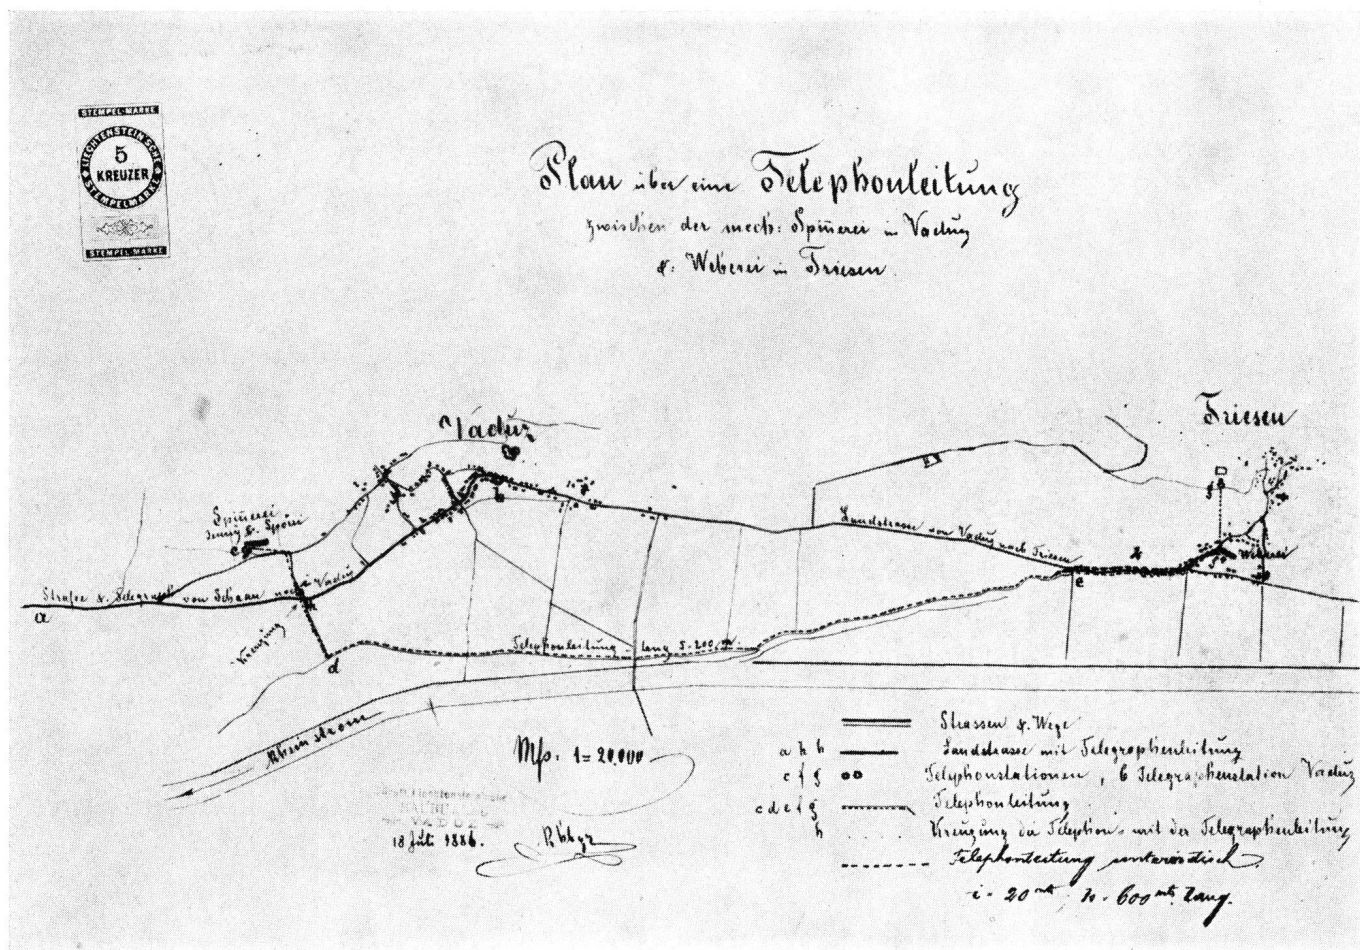 STEMPEL-MARKE
LIECHTENSTEIN'SCHE
5
KREUZER
STEMPELMARKE
STEMPEL-MARKE
Plan über eine Telephonleitung
zwischen der mech: Spinerei in Vaduz
&: Weberei in Triesen.
Vaduz
Triesen
Spinerei
Jenny & Spöri
c
b
f
g
Weberei
Landstrasse von Vaduz nach Triesen
e
Strasse & Telegraph von Schaan nach Vaduz
a
Kreuzung
d
Telephonleitung lang 5.200
Rheinstrom
Mß: 1 = 20,000
18 Juli 1886.
Strassen & Wege
a h b Landstrasse mit Telegraphenleitung
c f g Telephonstationen, b Telegraphenstation Vaduz
c d e f g Telephonleitung
h Kreuzung des Telephons mit der Telegraphenleitung
Telephonleitung unterirdisch
i = 20 mt. h = 600 mt. lang.